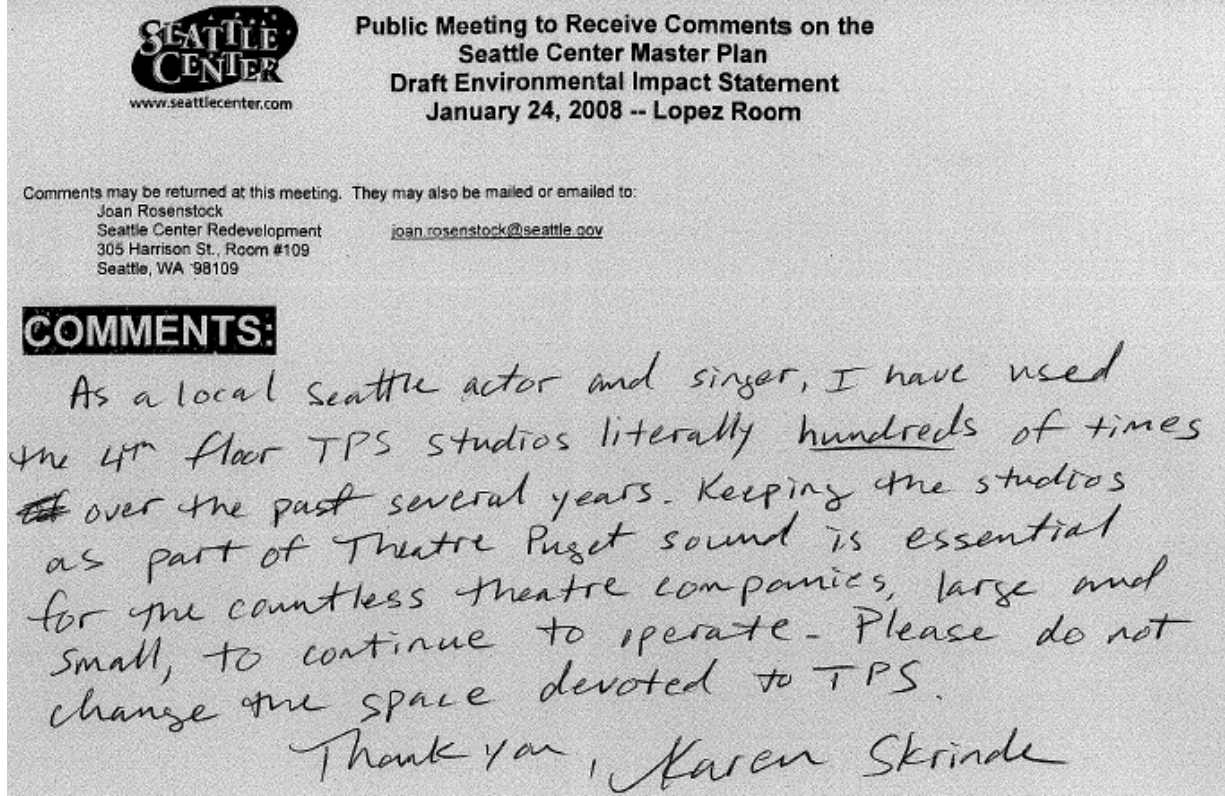 SEATTLE
CENTER
www.seattlecenter.com
Public Meeting to Receive Comments on the
Seattle Center Master Plan
Draft Environmental Impact Statement
January 24, 2008 -- Lopez Room
Comments may be returned at this meeting. They may also be mailed or emailed to:
Joan Rosenstock
Seattle Center Redevelopment joan.rosenstock@seattle.gov
305 Harrison St., Room #109
Seattle, WA 98109
COMMENTS:
As a local Seattle actor and singer, I have used
the 4th floor TPS studios literally hundreds of times
over the past several years. Keeping the studios
as part of Theatre Puget sound is essential
for the countless theatre companies, large and
small, to continue to operate. Please do not
change the space devoted to TPS.
Thank you, Karen Skrinde